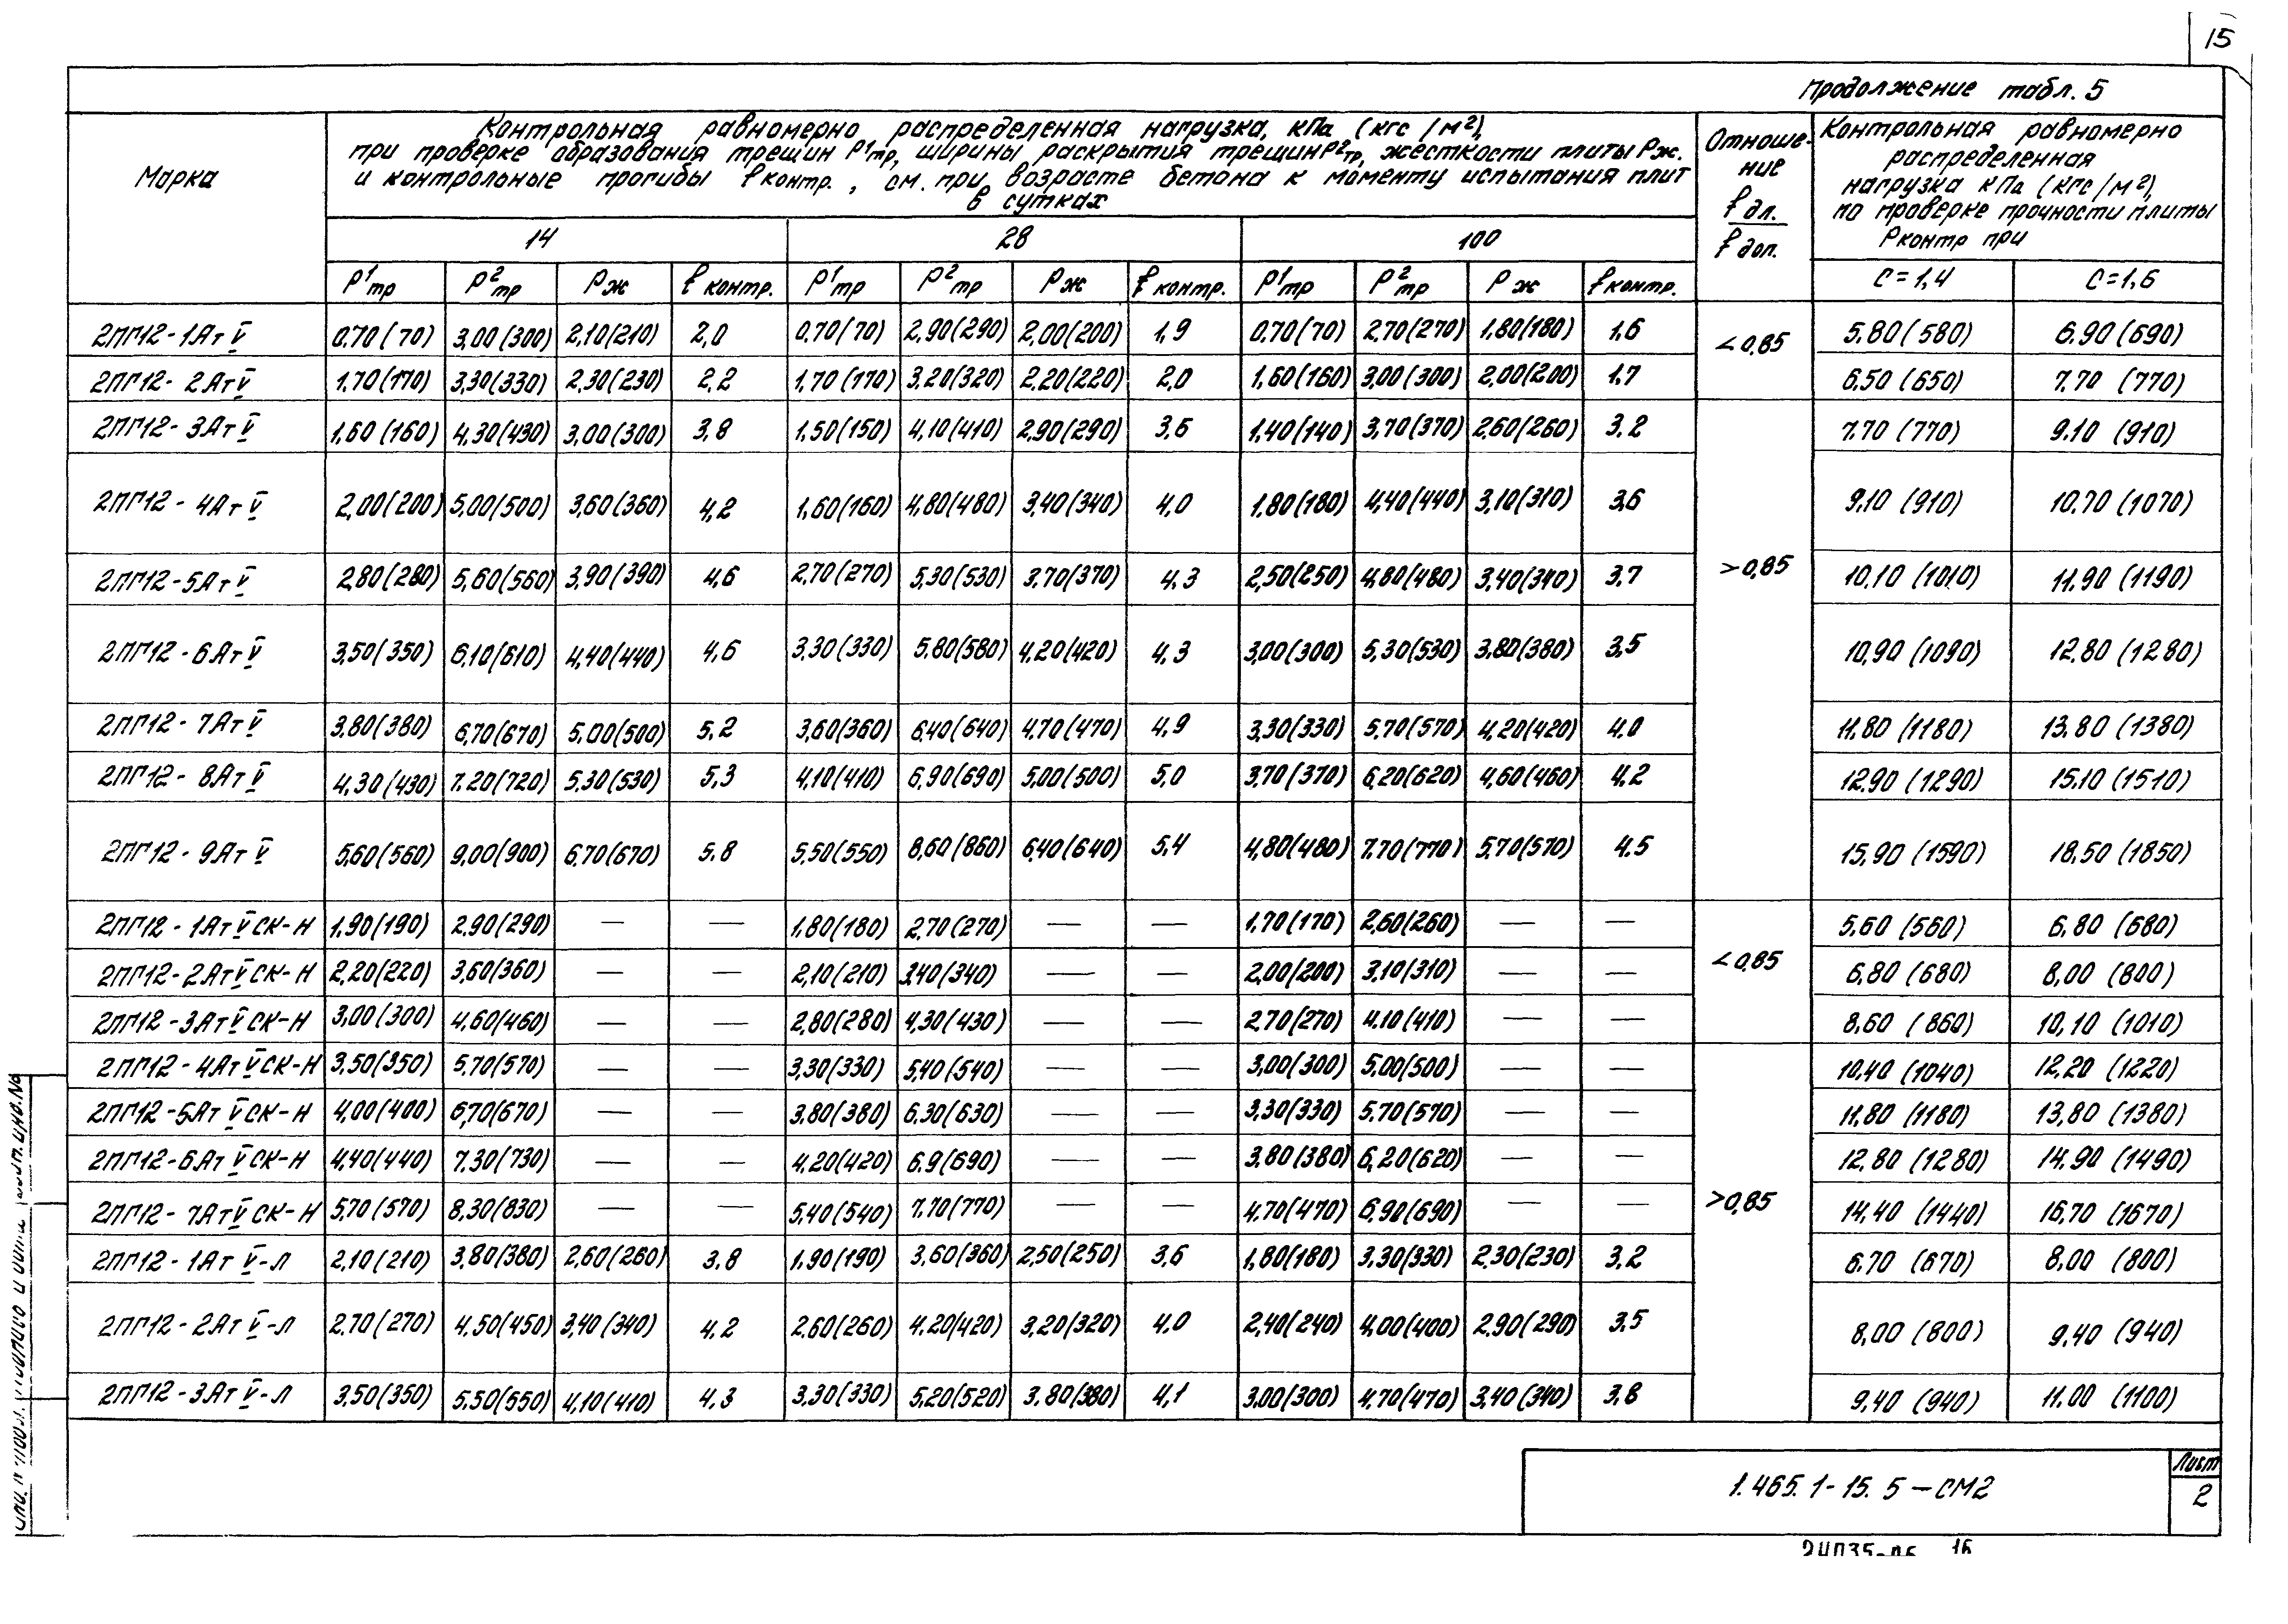 15
Продолжение табл. 5
Марка
Контрольная равномерно распределенная нагрузка, кПа (кгс/м²),
при проверке образования трещин P¹тр, ширины раскрытия трещин P²тр, жесткости плиты Pж.
и контрольные прогибы fконтр., см. при возрасте бетона к моменту испытания плит
в сутках
Отноше-
ние
f дл.
f доп.
Контрольная равномерно
распределенная
нагрузка кПа (кгс/м²),
по проверке прочности плиты
Pконтр при
14 28 100
P¹тр P²тр Pж f контр. P¹тр P²тр Pж f контр. P¹тр P²тр Pж f контр. C=1,4 C=1,6
2ПГ12-1АтV 0.70(70) 3,00(300) 2,10(210) 2,0 0.70(70) 2,90(290) 2,00(200) 1,9 0,70(70) 2,70(270) 1,80(180) 1,6 <0,85 5,80(580) 6,90(690)
2ПГ12-2АтV 1,70(170) 3,30(330) 2,30(230) 2,2 1,70(170) 3,20(320) 2,20(220) 2,0 1,60(160) 3,00(300) 2,00(200) 1,7 6,50(650) 7,70 (770)
2ПГ12-3АтV 1,60(160) 4,30(430) 3,00(300) 3,8 1,50(150) 4,10(410) 2,90(290) 3,6 1,40(140) 3,70(370) 2,60(260) 3,2 7,70 (770) 9,10 (910)
2ПГ12-4АтV 2,00(200) 5,00(500) 3,60(360) 4,2 1,60(160) 4,80(480) 3,40(340) 4,0 1,80(180) 4,40(440) 3,10(310) 3,6 9,10 (910) 10,70 (1070)
2ПГ12-5АтV 2,80(280) 5,60(560) 3,90(390) 4,6 2,70(270) 5,30(530) 3,70(370) 4,3 2,50(250) 4,80(480) 3,40(340) 3,7 >0,85 10,10 (1010) 11,90 (1190)
2ПГ12-6АтV 3,50(350) 6,10(610) 4,40(440) 4,6 3,30(330) 5,80(580) 4,20(420) 4,3 3,00(300) 5,30(530) 3,80(380) 3,5 10,90 (1090) 12,80 (1280)
2ПГ12-7АтV 3,80(380) 6,70(670) 5,00(500) 5,2 3,60(360) 6,40(640) 4,70(470) 4,9 3,30(330) 5,70(570) 4,20(420) 4,0 11,80 (1180) 13,80 (1380)
2ПГ12-8АтV 4,30(430) 7,20(720) 5,30(530) 5,3 4,10(410) 6,90(690) 5,00(500) 5,0 3,70(370) 6,20(620) 4,60(460) 4,2 12,90 (1290) 15,10 (1510)
2ПГ12-9АтV 5,60(560) 9,00(900) 6,70(670) 5,8 5,50(550) 8,60(860) 6,40(640) 5,4 4,80(480) 7,70(770) 5,70(570) 4,5 15,90 (1590) 18,50 (1850)
2ПГ12-1АтVСК-Н 1,90(190) 2,90(290) — — 1,80(180) 2,70(270) — — 1,70(170) 2,60(260) — — 5,60 (560) 6,80 (680)
2ПГ12-2АтVСК-Н 2,20(220) 3,60(360) — — 2,10(210) 3,40(340) — — 2,00(200) 3,10(310) — — <0,85 6,80 (680) 8,00 (800)
2ПГ12-3АтVСК-Н 3,00(300) 4,60(460) — — 2,80(280) 4,30(430) — — 2,70(270) 4,10(410) — — 8,60 (860) 10,10 (1010)
2ПГ12-4АтVСК-Н 3,50(350) 5,70(570) — — 3,30(330) 5,40(540) — — 3,00(300) 5,00(500) — — 10,40 (1040) 12,20 (1220)
2ПГ12-5АтVСК-Н 4,00(400) 6,70(670) — — 3,80(380) 6,30(630) — — 3,30(330) 5,70(570) — — 11,80 (1180) 13,80 (1380)
2ПГ12-6АтVСК-Н 4,40(440) 7,30(730) — — 4,20(420) 6,9(690) — — 3,80(380) 6,20(620) — — 12,80 (1280) 14,90 (1490)
2ПГ12-7АтVСК-Н 5,70(570) 8,30(830) — — 5,40(540) 7,70(770) — — 4,70(470) 6,90(690) — — >0,85 14,40 (1440) 16,70 (1670)
2ПГ12-1АтV-Л 2,10(210) 3,80(380) 2,60(260) 3,8 1,90(190) 3,60(360) 2,50(250) 3,6 1,80(180) 3,30(330) 2,30(230) 3,2 6,70 (670) 8,00 (800)
2ПГ12-2АтV-Л 2,70(270) 4,50(450) 3,40(340) 4,2 2,60(260) 4,20(420) 3,20(320) 4,0 2,40(240) 4,00(400) 2,90(290) 3,5 8,00 (800) 9,40 (940)
2ПГ12-3АтV-Л 3,50(350) 5,50(550) 4,10(410) 4,3 3,30(330) 5,20(520) 3,80(380) 4,1 3,00(300) 4,70(470) 3,40(340) 3,8 9,40 (940) 11,00 (1100)
1.465.1-15. 5-СМ2
Лист
2
16